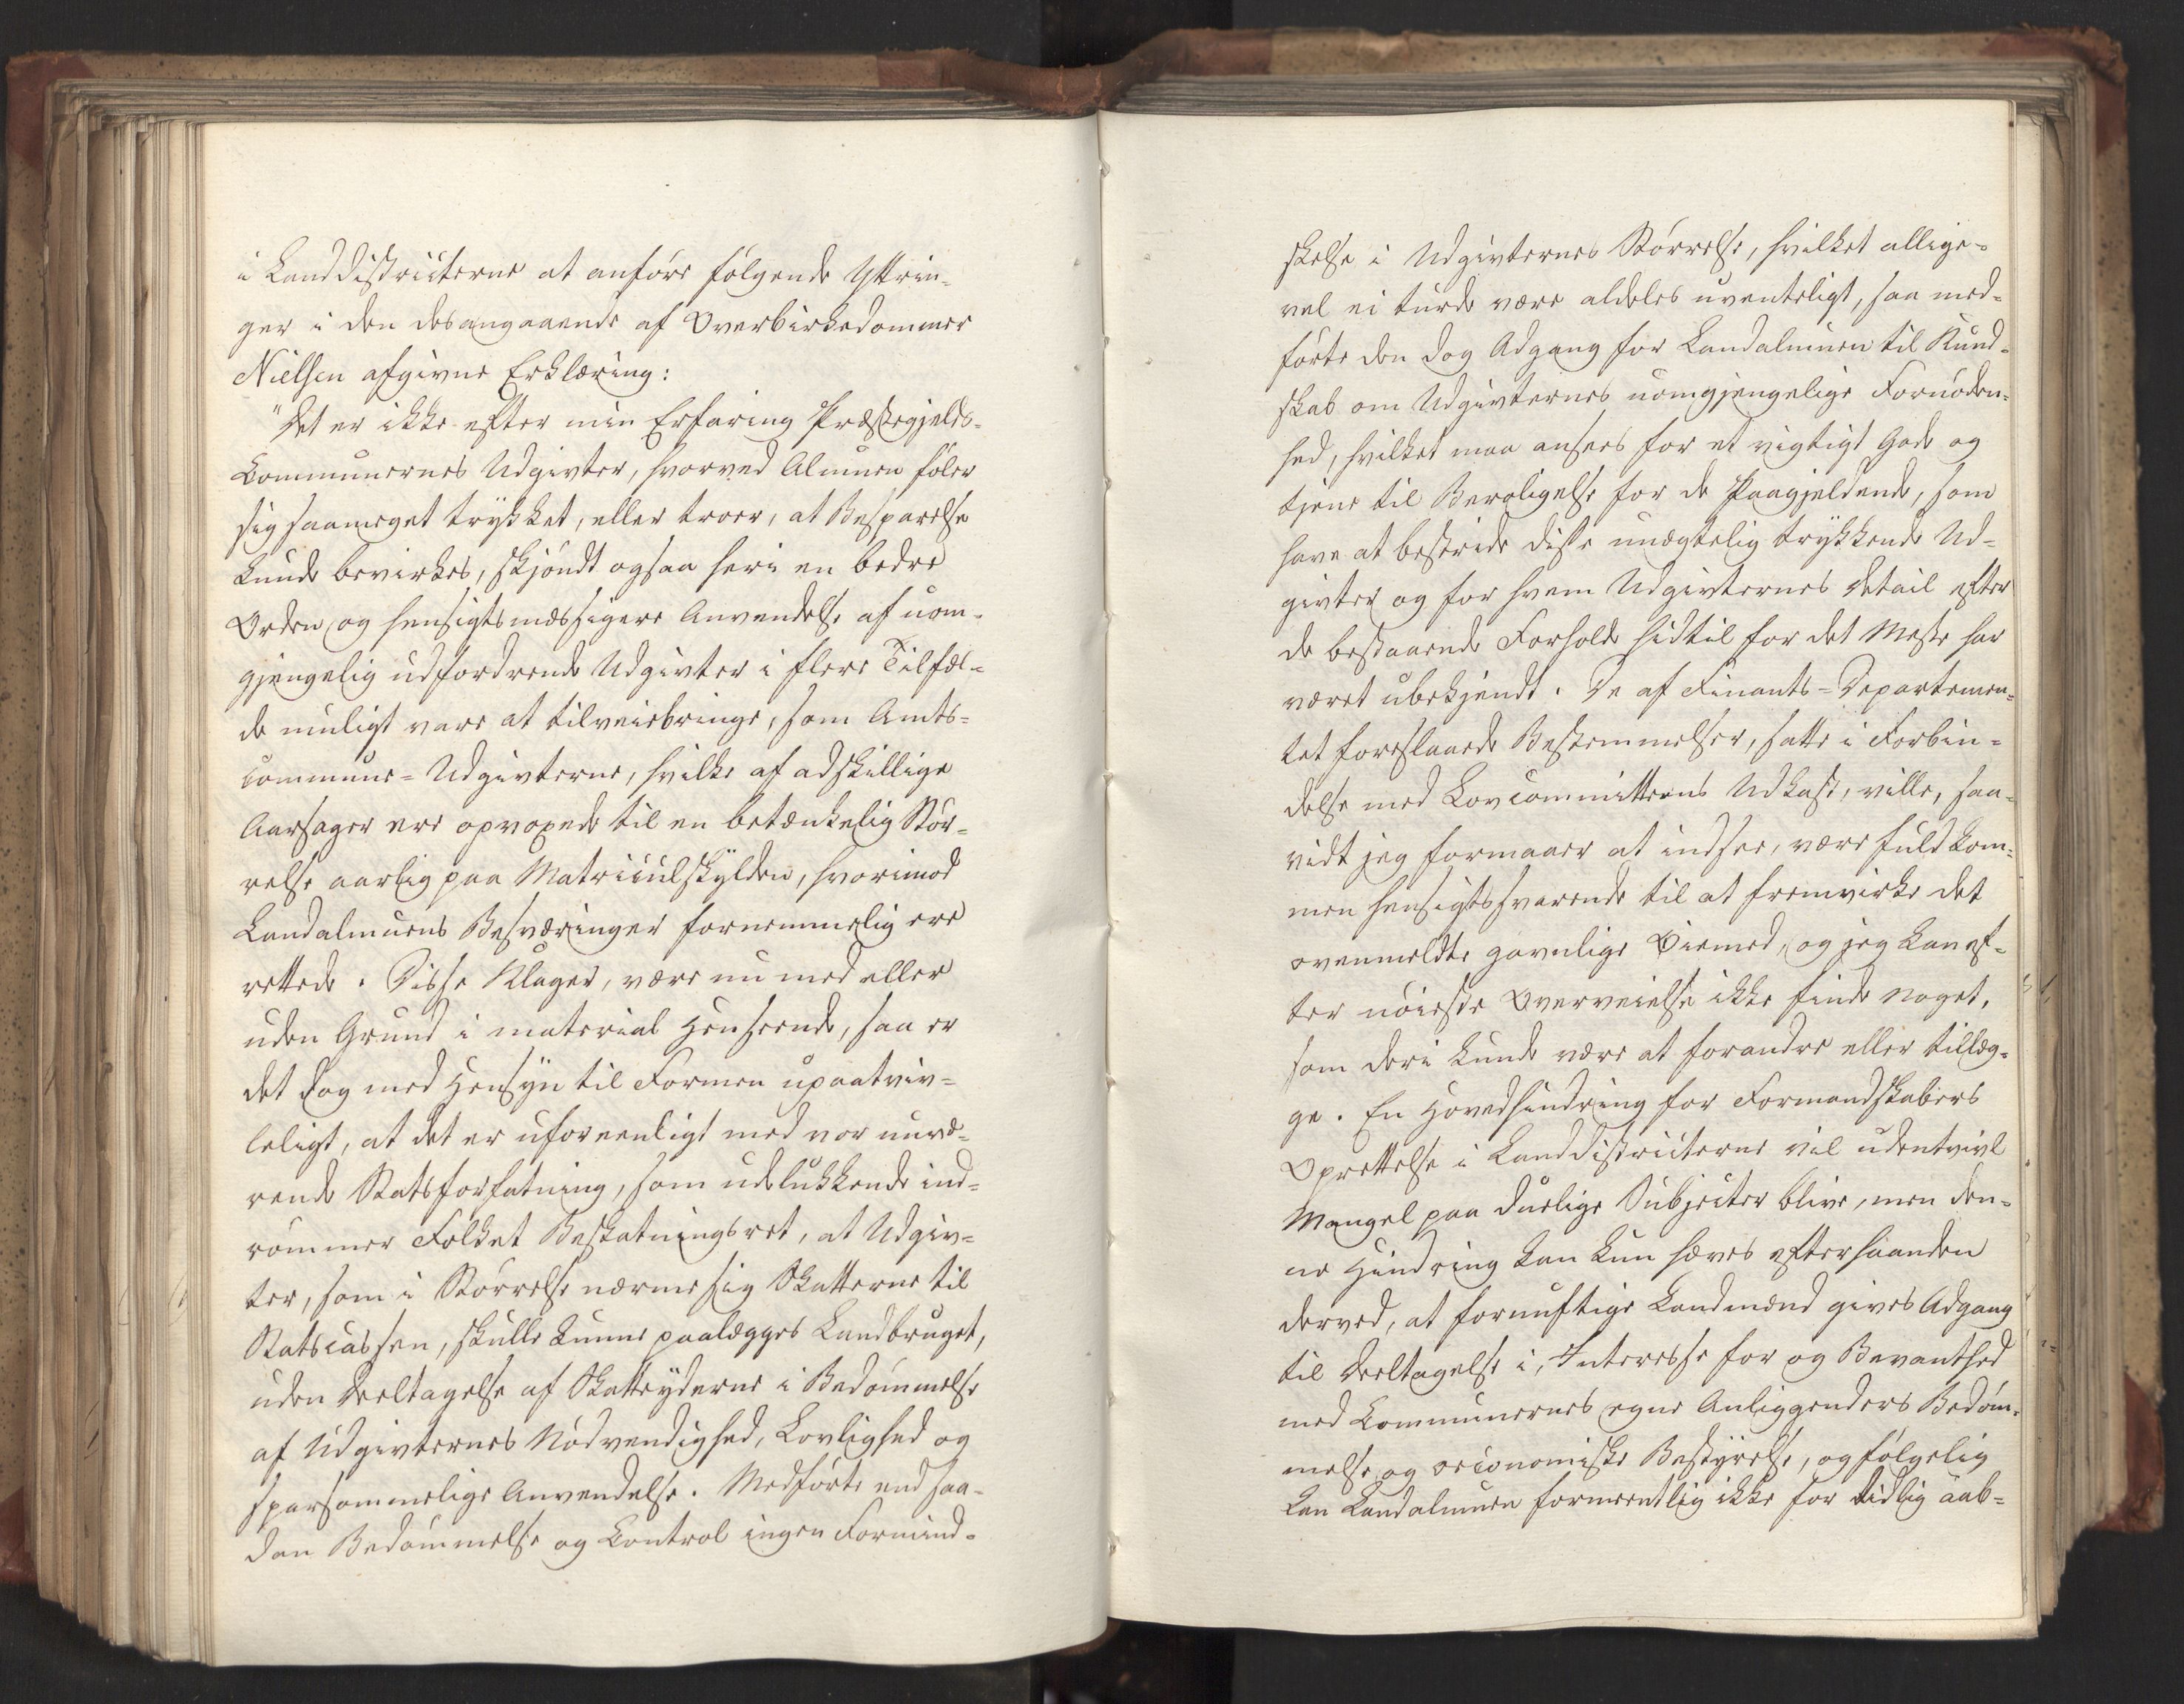 i Landdistricterne at anføre følgende Yttrin-
ger i den desangaaende af Overbirkedommer
Nielsen afgivne Erklæring:
"Det er ikke efter min Erfaring Præstegjelds-
Communernes Udgivter, hvorved Almuen føler
sig saameget trykket, eller troer, at Besparelse
kunde bevirkes, skjøndt ogsaa heri en bedre
Orden og hensigtsmæssigere Anvendelse af uom-
gjengelig udfordrende Udgivter i flere Tilfæl-
de muligt vare at tilveiebringe, som Amts-
commune-Udgivterne, hvilke af adskillige
Aarsager ere opvoxede til en betænkelig Stør-
relse aarlig paa Matriculskylden, hvorimod
Landalmuens Besværinger fornemmelig ere
rettede. Disse Klager, være nu med eller
uden Grund i material Henseende, saa er
det dog med Hensyn til Formen upaatviv-
leligt, at det er uforeenligt med vor nuvæ-
rende Statsforfatning, som udelukkende ind-
rømmer Folket Beskatningsret, at Udgiv-
ter, som i Størrelse nærme sig Skatterne til
Statscassen, skulle kunne paalægges Landbruget,
uden Deeltagelse af Skatteyderne i Bedømmelse
af Udgivternes Nødvendighed, Lovlighed og
sparsommelige Anvendelse. Medførte end saa-
dan Bedømmelse og Control ingen Formind-
skelse i Udgivternes Størrelse, hvilket allige-
vel ei turde være aldeles uventeligt, saa med-
førte den dog Adgang for Landalmuen til Kund-
skab om Udgivternes uomgjengelige Fornøden-
hed, hvilket maa ansees for et vigtigt Gode og
tjene til Beroligelse for de Paagjeldende, som
have at bestride disse unægtelig trykkende Ud-
givter og for hvem Udgivternes Detail efter
de bestaaende Forholde hidtil for det Meste har
været ubekjendt. De af Finants-Departemen-
tet foreslaaede Bestemmelser, satte i Forbin-
delse med Lovcommitteens Udkast, ville, saa-
vidt jeg formaaer at indsee, være fuldkom-
men hensigtssvarende til at fremvirke det
ovenmeldte gavnlige Øiemed, og jeg kan ef-
ter nøieste Overveielse ikke finde noget,
som deri kunde være at forandre eller tillæg-
ge. En Hovedhindring for Formandskabers
Oprettelse i Landdistricterne vil udentvivl
Mangel paa duelige Subjecter blive, men den-
ne Hindring kan kun hæves efterhaanden
derved, at fornuftige Landmænd gives Adgang
til Deeltagelse i, Interesse for og Bevanthed
med Communernes egne Anliggenders Bedøm-
melse og oeconomiske Bestyrelse, og følgelig
kan Landalmuen formeentlig ikke for tidlig aab-